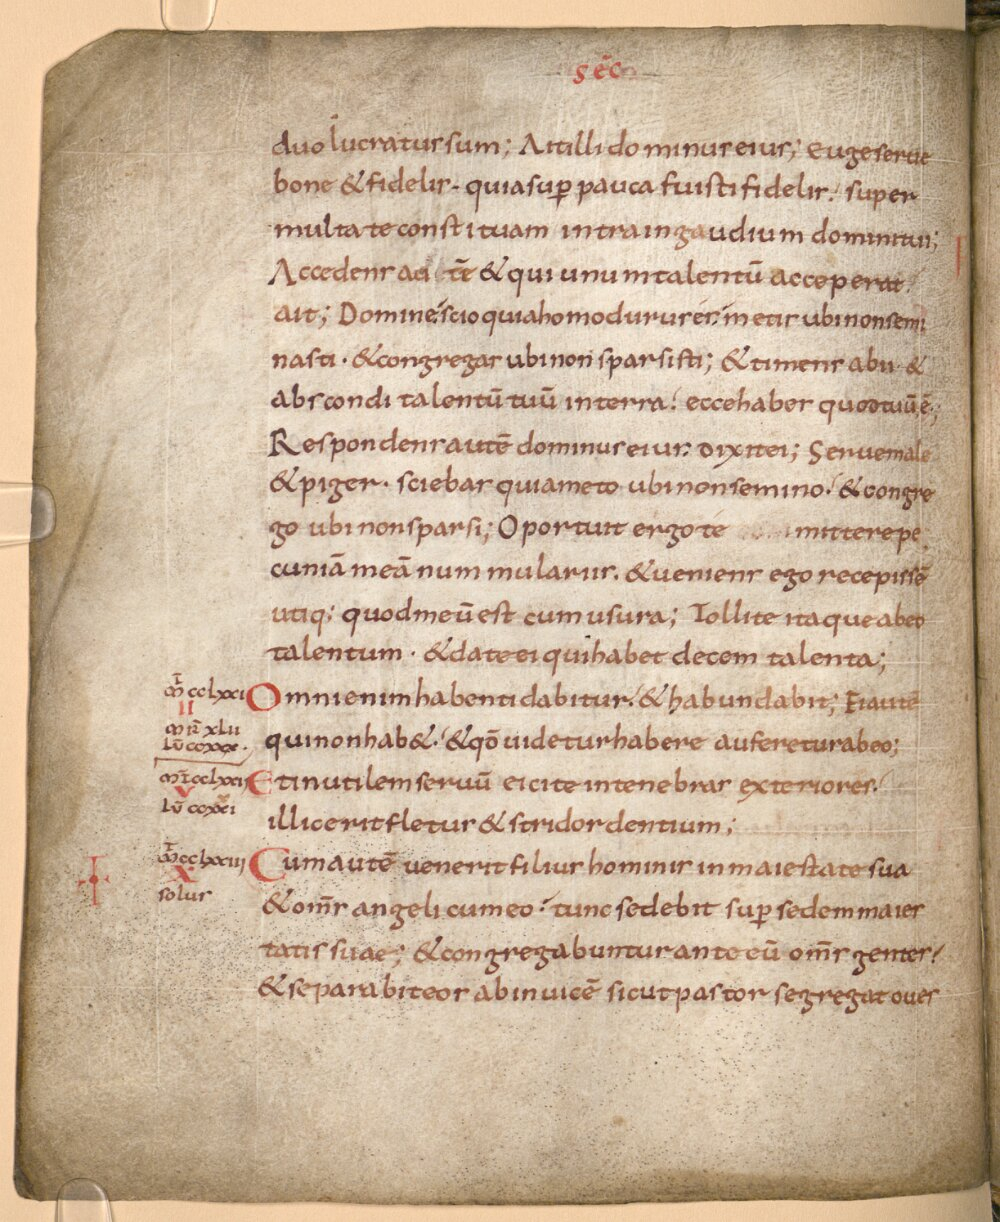 sēc
duo lucratus sum; Ait illi dominus eius; euge serue
bone & fidelis· quia sup pauca fuisti fidelis· super
multa te constituam intra in gaudium domini tui;
Accedens a tē & qui unum talentū acceperat
ait; Domine scio quia homo durus es· metis ubi non semi
nasti· & congregas ubi non sparsisti; & timens abii &
abscondi talentū tuū in terra· ecce habes quod tuū ē;
Respondens autē dominus eius· dixit ei; Serue male
& piger· sciebas quia meto ubi non semino· & congre
go ubi non sparsi; Oportuit ergo te mittere pe
cuniā meā nummulariis· & ueniens ego recepissē
utiq; quod meū est cum usura; Tollite itaque ab eo
talentum· & date ei qui habet decem talenta;
m̄ cclxxi Omni enim habenti dabitur· & habundabit; Ei autē
II
m̄r̄ xlii
lū ccxxx· qui non hab&· & qō uidetur habere auferetur ab eo;
cclxxii Et inutilem seruū eicite in tenebras exteriores·
V
lū ccxxi illic erit fletus & stridor dentium;
m̄ cclxxiii Cum autē uenerit filius hominis in maiestate sua
X
solus & om̄s angeli cum eo· tunc sedebit sup sedem maies
tatis suae; & congregabuntur ante eū om̄s gentes·
& separabit eos ab inuicē sicut pastor segregat oues